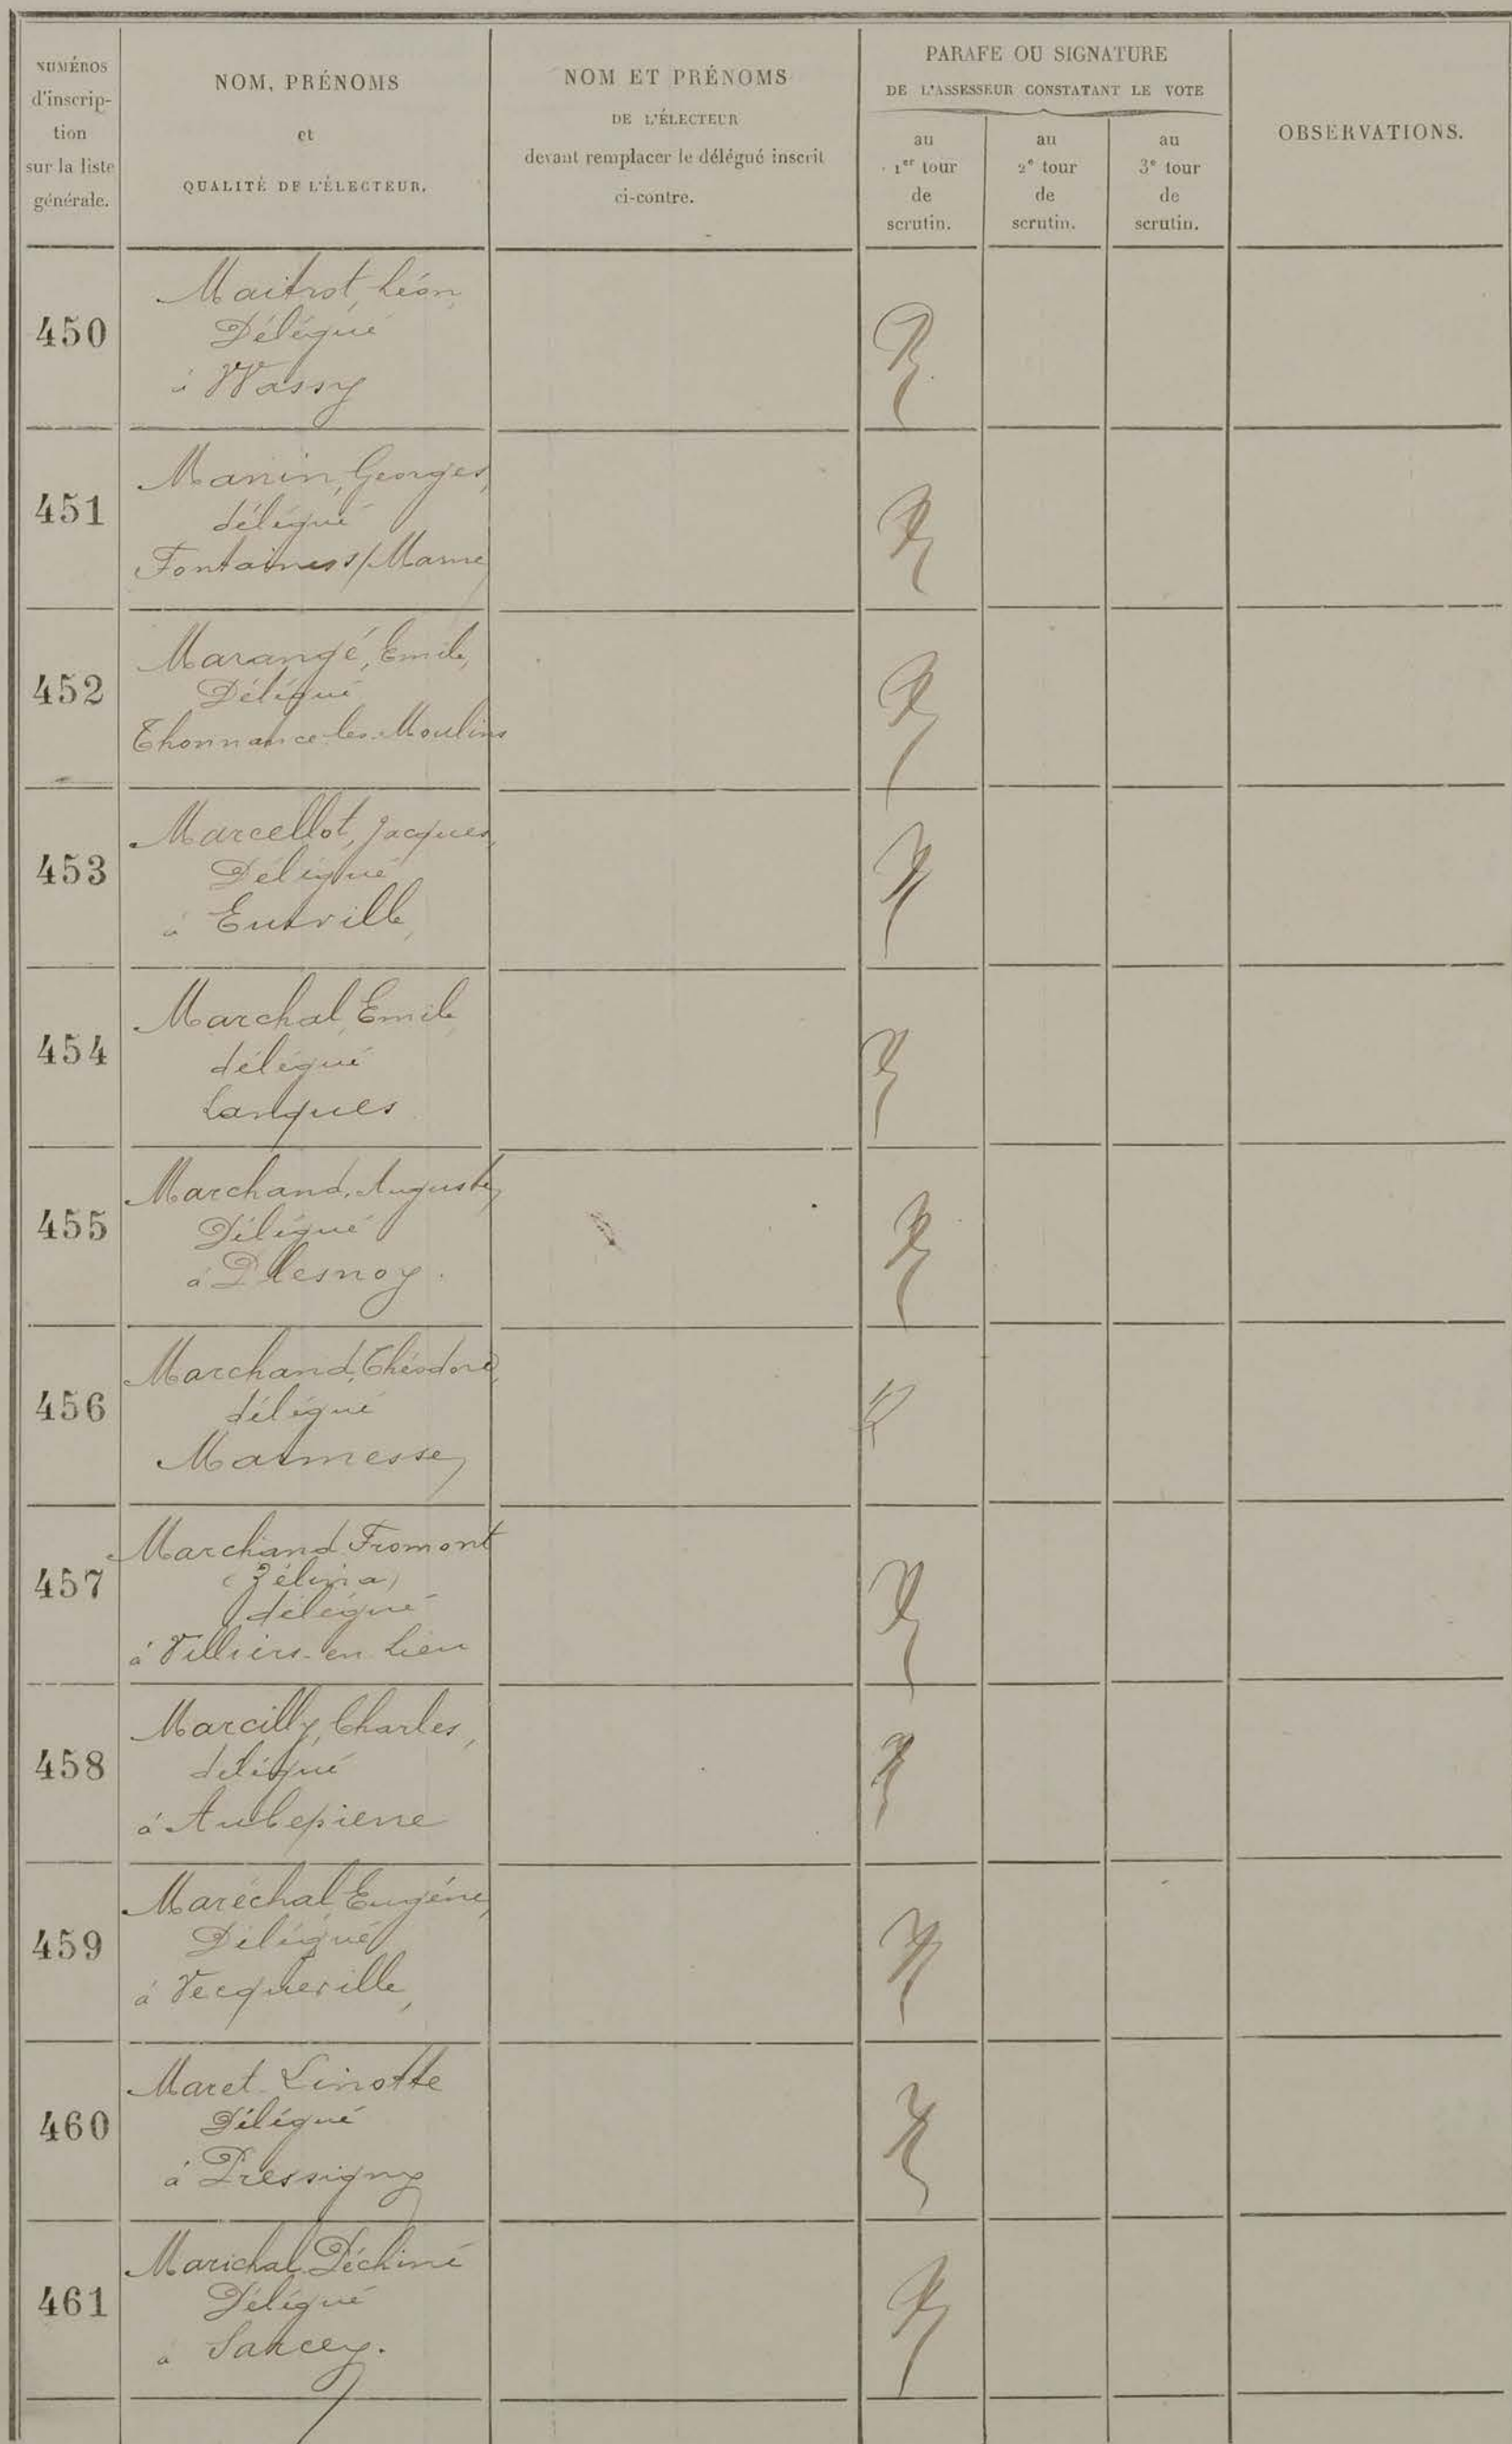 NUMÉROS
d'inscrip-
tion
sur la liste
générale.
NOM, PRÉNOMS
et
QUALITÉ DE L'ÉLECTEUR.
NOM ET PRÉNOMS
DE L'ÉLECTEUR
devant remplacer le délégué inscrit
ci-contre.
PARAFE OU SIGNATURE
DE L'ASSESSEUR CONSTATANT LE VOTE
au
1er tour
de
scrutin.
au
2e tour
de
scrutin.
au
3e tour
de
scrutin.
OBSERVATIONS.
450
Maitrot, Léon,
Délégué
à Wassy
451
Manin, Georges,
délégué
Fontaines s/Marne
452
Marangé, Emile,
Délégué
Thonnance-les-Moulins
453
Marcellot, Jacques,
Délégué
à Eurville,
454
Marchal, Emile
délégué
Lanques
455
Marchand, Auguste,
Délégué
à Plesnoy.
456
Marchand, Théodore,
délégué
Marmesse,
457
Marchand Fromont
(Zélina)
délégué
à Villiers-en-Lieu
458
Marcilly, Charles,
délégué
à Aubepierre
459
Maréchal, Eugène,
Délégué
à Vecqueville,
460
Maret-Linotte
Délégué
à Pressigny
461
Marichal-Déchiné
Délégué
à Sarcey.